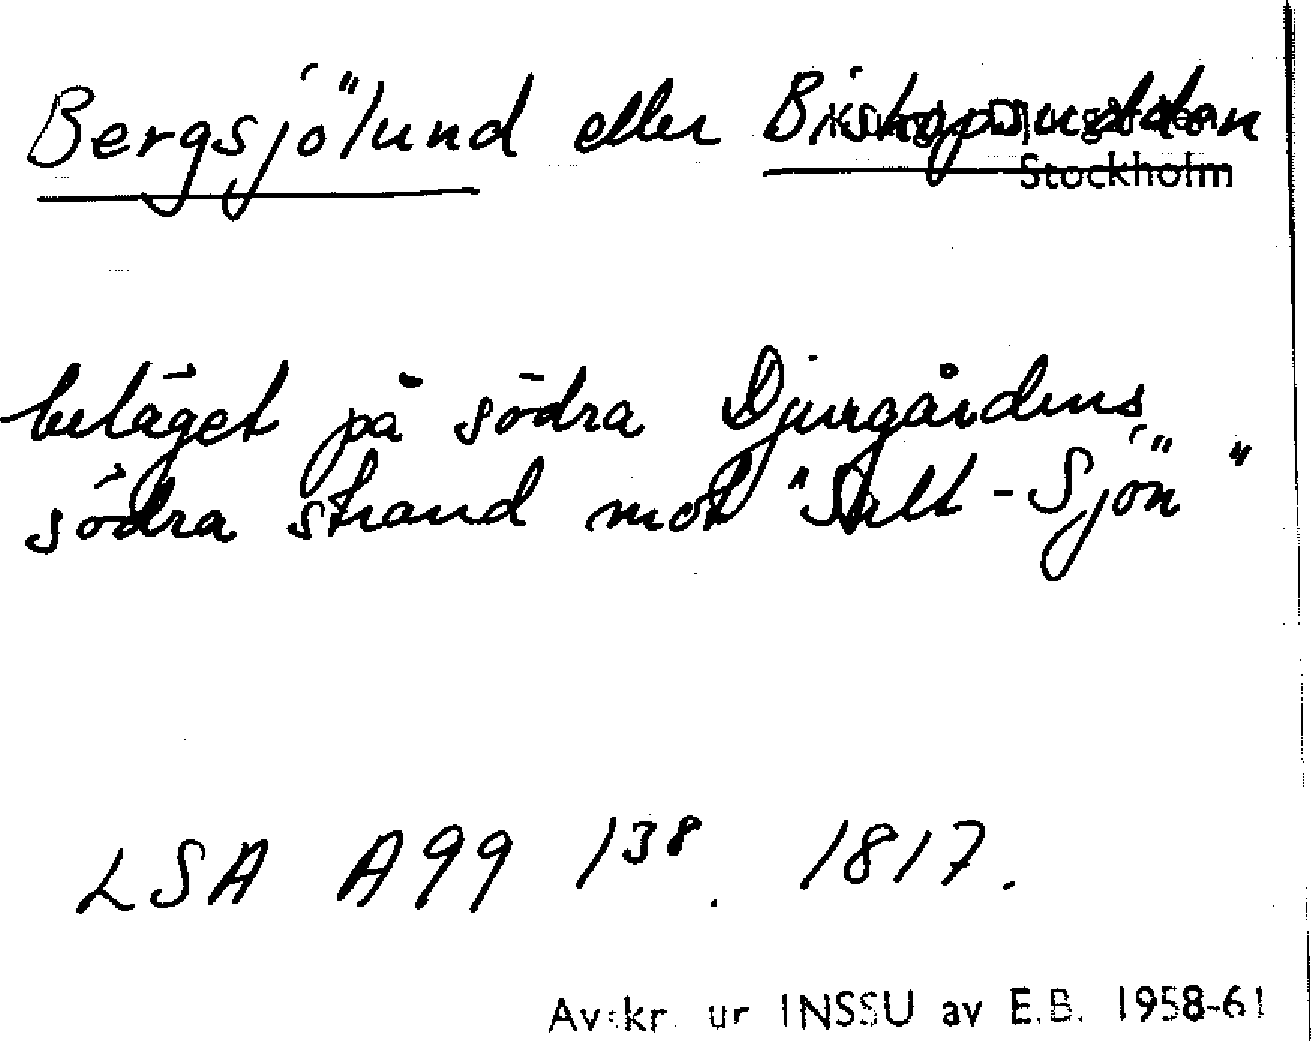 Bergsjölund eller Biskopsudden
Kungl. Djurgården
Stockholm
beläget på södra Djurgårdens
södra strand mot "Salt-Sjön"
LSA A99 1³⁸. 1817.
Avskr. ur INSSU av E.B. 1958-61